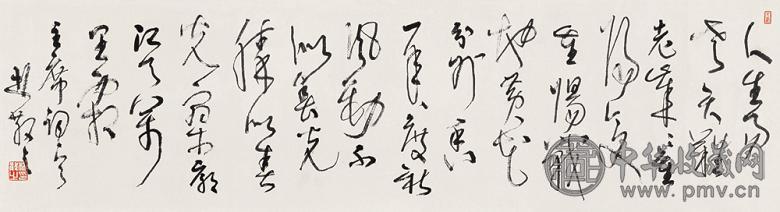 人生易
老天难
老岁岁重
阳今又
重阳战
地黄花
分外香
一年一度秋
风劲不
似春光
胜似春
光寥廓
江天万
里霜
主席词
中华收藏网
www.pmv.cn